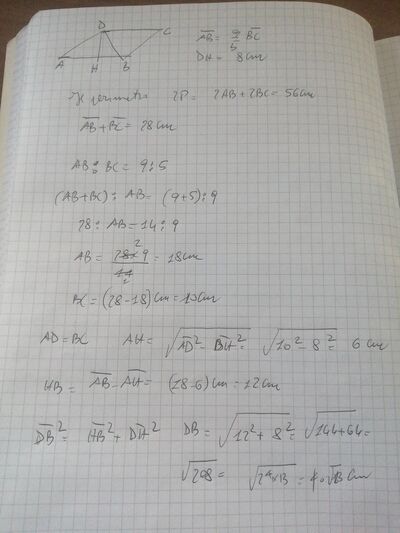 D C
A H B
AB = 9/5 BC
DH = 8 cm
Il perimetro 2P = 2AB + 2BC = 56 cm
AB + BC = 28 cm
AB : BC = 9 : 5
(AB + BC) : AB = (9+5) : 9
28 : AB = 14 : 9
AB = 28 x 9 / 14 = 18 cm
BC = (28 - 18) cm = 10 cm
AD = BC AH = √AD² - DH² = √10² - 8² = 6 cm
HB = AB - AH = (18 - 6) cm = 12 cm
DB² = HB² + DH² DB = √12² + 8² = √144 + 64 =
√208 = √2⁴ x 13 = 4 √13 cm